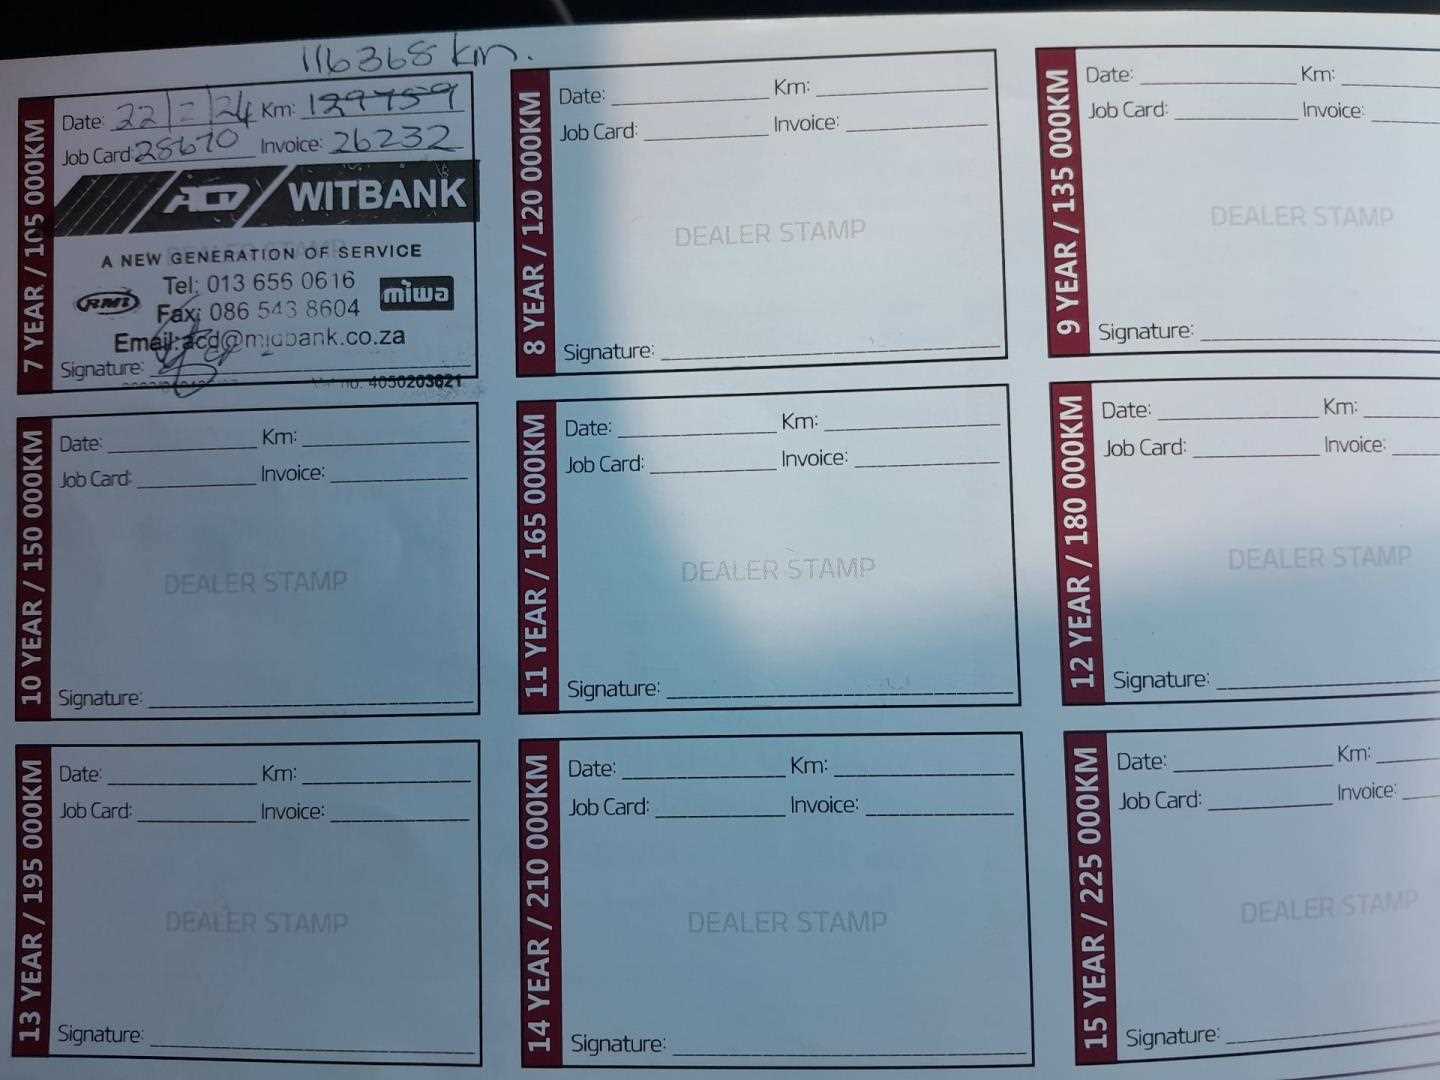 116368 km.
7 YEAR / 105 000KM
Date: 22/ /24 Km: 129759
Job Card: 28670 Invoice: 26232
ACD WITBANK
A NEW GENERATION OF SERVICE
Tel: 013 656 0616
RMI miwa
Fax: 086 543 8604
Email:acd@migbank.co.za
Signature:
no. 4050203621
8 YEAR / 120 000KM
Date: Km:
Job Card: Invoice:
DEALER STAMP
Signature:
9 YEAR / 135 000KM
Date: Km:
Job Card: Invoice:
DEALER STAMP
Signature:
10 YEAR / 150 000KM
Date: Km:
Job Card: Invoice:
DEALER STAMP
Signature:
11 YEAR / 165 000KM
Date: Km:
Job Card: Invoice:
DEALER STAMP
Signature:
12 YEAR / 180 000KM
Date: Km:
Job Card: Invoice:
DEALER STAMP
Signature:
13 YEAR / 195 000KM
Date: Km:
Job Card: Invoice:
DEALER STAMP
Signature:
14 YEAR / 210 000KM
Date: Km:
Job Card: Invoice:
DEALER STAMP
Signature:
15 YEAR / 225 000KM
Date: Km:
Job Card: Invoice:
DEALER STAMP
Signature: